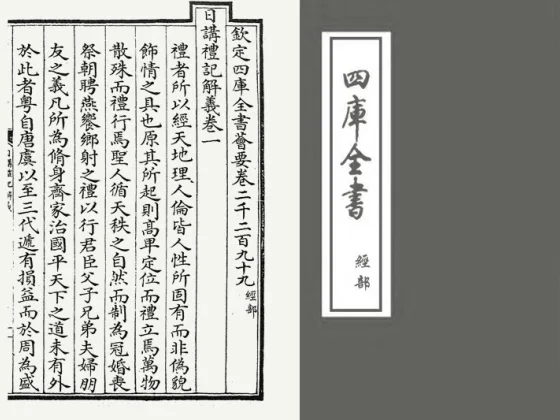 欽定四庫全書薈要卷二千二百九十九 經部
日講禮記解義卷一
禮者所以經天地理人倫皆人性所固有而非偽貌
飾情之具也原其所起則高卑定位而禮立焉萬物
散殊而禮行焉聖人循天秩之自然而制為冠婚喪
祭朝聘燕饗鄉射之禮以行君臣父子兄弟夫婦朋
友之義凡所為脩身齊家治國平天下之道未有外
於此者粵自唐虞以至三代遞有損益而於周為盛
四庫全書
經部